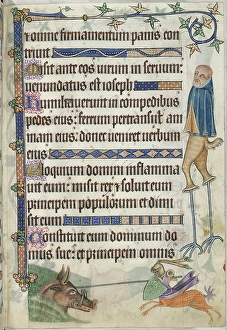 et omne firmamentum panis con
triuit
Misit ante eos uirum in seruum:
uenundatus est ioseph
Humiliauerunt in compedibus
pedes eius: ferrum pertransiit am
am eius: donec ueniret uerbum
eius
Eloquium domini inflamma
uit eum: misit rex et soluit eum
princepem populorum et dimi
sit eum
Constituit eum dominum do
mus sue: et principem omnis